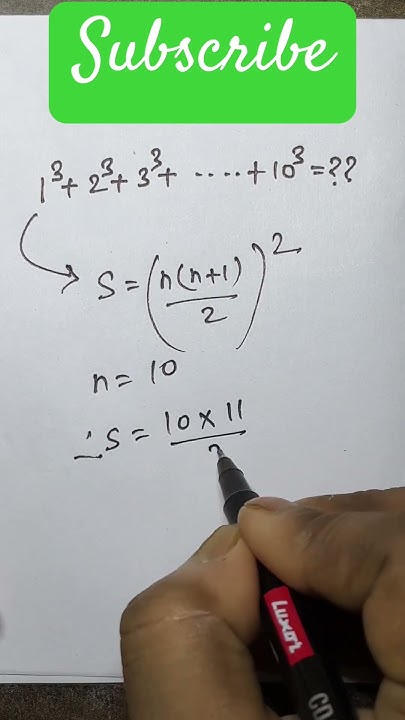 Subscribe
1³ + 2³ + 3³ + ..... + 10³ = ??
S = (n(n+1)/2)²
n = 10
∴ S = 10 × 11
Luxor